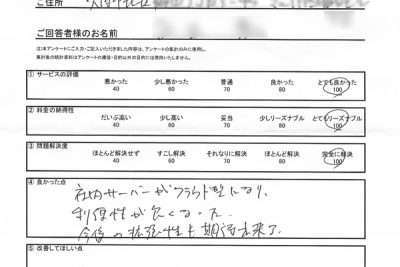 ご住所
ご回答者様のお名前
注)本アンケートにご入力・ご記入いただきました内容は、アンケートの集計のみに使用し、
集計後の統計資料はアンケートの趣旨・目的以外の目的には使用しません。
① サービスの評価 悪かった 少し悪かった 普通 良かった とても良かった
40 60 70 80 100
② 料金の納得性 だいぶ高い 少し高い 妥当 少しリーズナブル とてもリーズナブル
40 60 70 80 100
③ 問題解決度 ほとんど解決せず すこし解決 それなりに解決 ほとんど解決 完全に解決
40 60 70 80 100
④ 良かった点
社内サーバーがクラウド型になり、
利便性が良くなった。
今後の拡張性も期待出来る。
⑤ 改善してほしい点